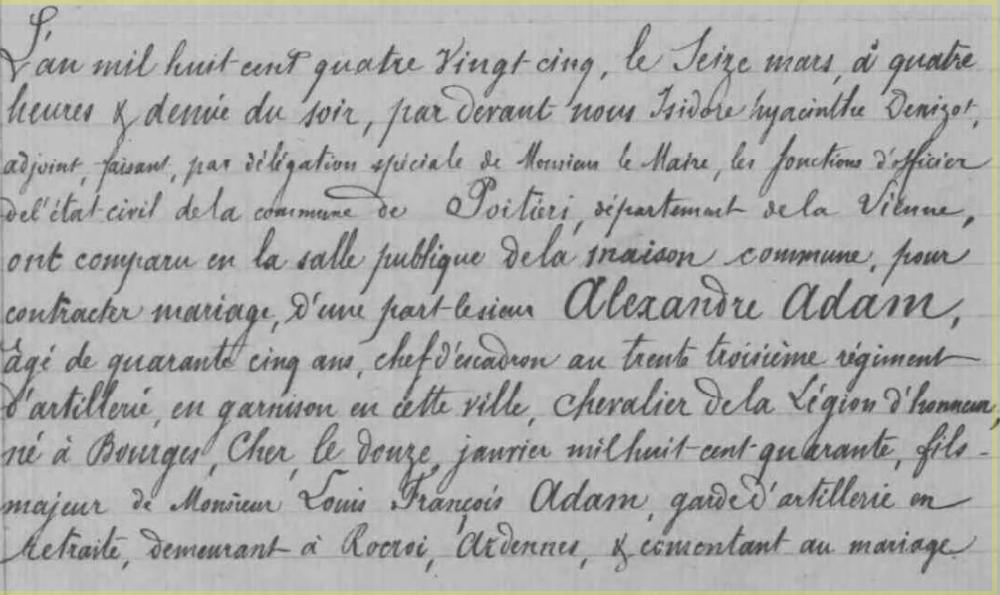 L'an mil huit cent quatre vingt cinq, le Seize mars, à quatre
heures & demie du soir, par devant nous Isidore hyacinthe Denizot,
adjoint, faisant, par délégation spéciale de Monsieur le Maire, les fonctions d'officier
de l'état civil de la commune de Poitiers, département de la Vienne,
ont comparu en la salle publique de la maison commune, pour
contracter mariage, D'une part le sieur Alexandre Adam,
âgé de quarante cinq ans, chef d'escadron au trente troisième régiment
d'artillerie, en garnison en cette ville, chevalier de la Légion d'honneur,
né à Bourges, Cher, le douze janvier mil huit cent quarante, fils
majeur de Monsieur Louis François Adam, garde d'artillerie en
retraite, demeurant à Rocroi, Ardennes, & consentant au mariage